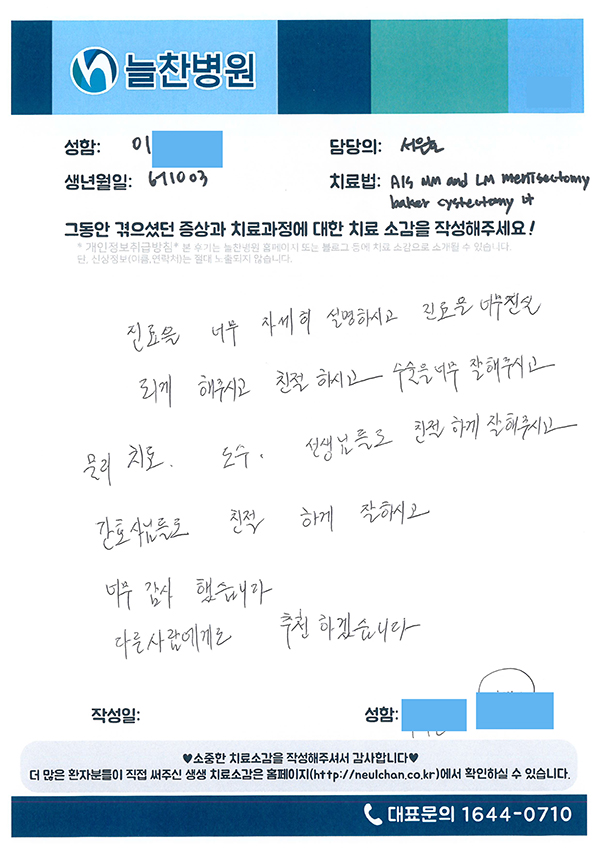 늘찬병원
성함: 이
담당의: 서윤호
생년월일: 671003
치료법: A/S MM and LM menisectomy
baker cystectomy Lt
그동안 겪으셨던 증상과 치료과정에 대한 치료 소감을 작성해주세요!
*개인정보취급방침* 본 후기는 늘찬병원 홈페이지 또는 블로그 등에 치료 소감으로 소개될 수 있습니다.
단, 신상정보(이름,연락처)는 절대 노출되지 않습니다.
진료을 너무 자세히 설명하시고 진료을 너무진실
되게 해주시고 친절 하시고 수술을너무 잘해주시고
물리 치료. 도수. 선생님들도 친절 하게 잘해주시고
간호사님들도 친절 하게 잘하시고
너무 감사 했습니다
다른사람에게도 추천 하겠습니다
작성일:
성함:
♥소중한 치료소감을 작성해주셔서 감사합니다♥
더 많은 환자분들이 직접 써주신 생생 치료소감은 홈페이지(http://neulchan.co.kr)에서 확인하실 수 있습니다.
대표문의 1644-0710